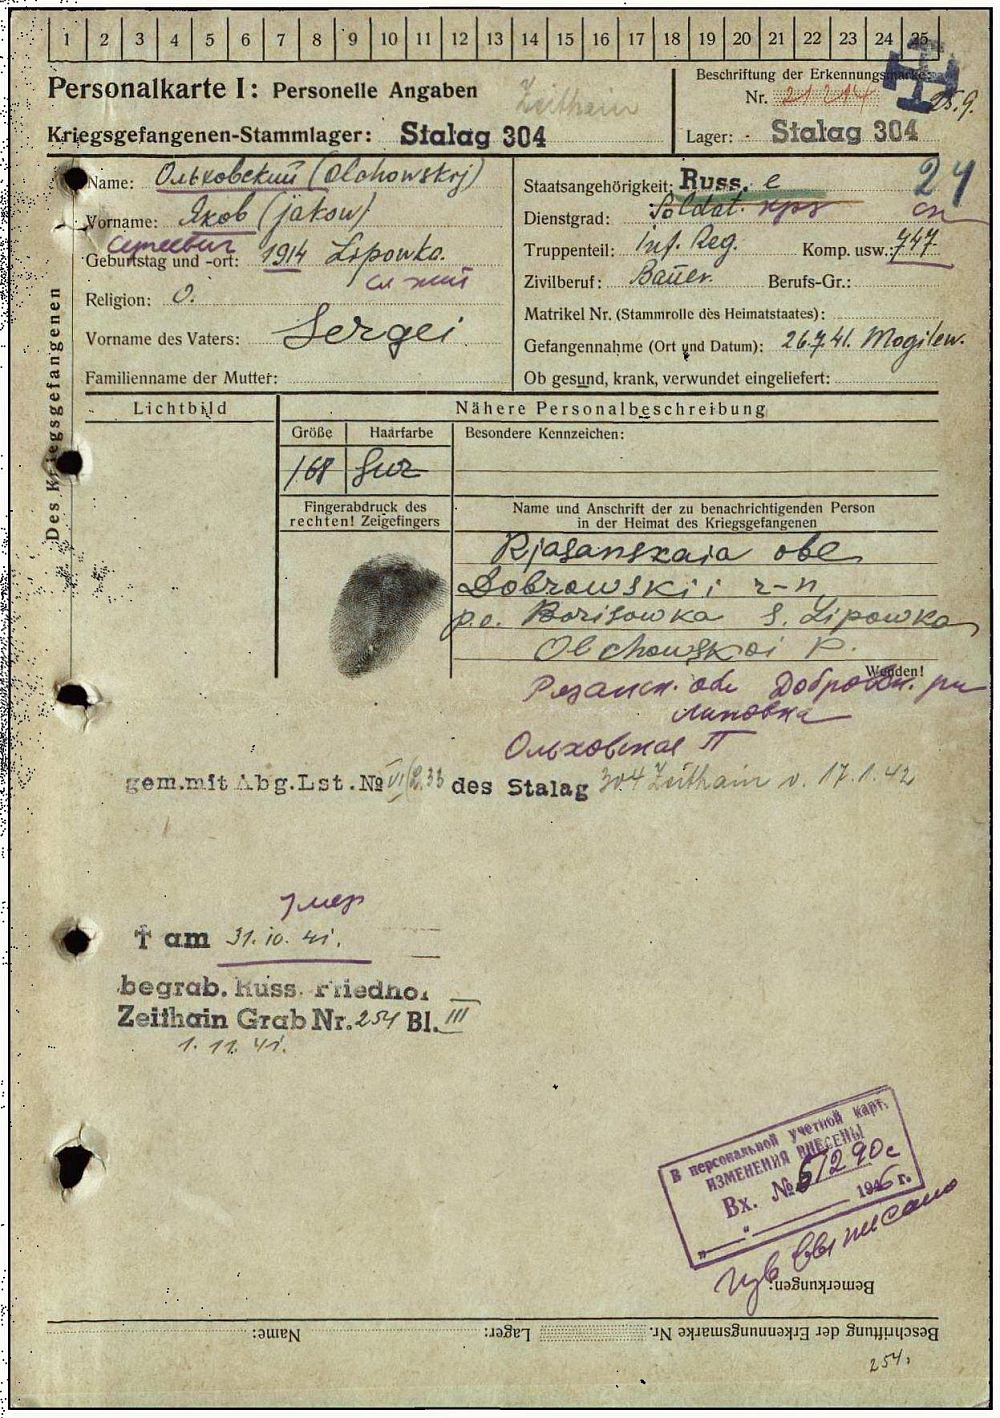 1 2 3 4 5 6 7 8 9 10 11 12 13 14 15 16 17 18 19 20 21 22 23 24 25
Personalkarte I: Personelle Angaben
Zeithain
Beschriftung der Erkennungsmarke
Nr. 21214
25.9.
Kriegsgefangenen-Stammlager: Stalag 304
Lager: Stalag 304
Des Kriegsgefangenen
Name: Ольховский (Olchowskij)
Vorname: Яков (Jakow)
Сергеевич
Geburtstag und -ort: 1914 Lipowka.
Religion: O.
Vorname des Vaters: Sergei
Familienname der Mutter:
Staatsangehörigkeit: Russ. e
24
Dienstgrad: Soldat. кр
Truppenteil: Inf. Reg. Komp. usw.: 747
Zivilberuf: Bauer. Berufs-Gr.:
Matrikel Nr. (Stammrolle des Heimatstaates):
Gefangennahme (Ort und Datum): 26.7.41. Mogilew.
Ob gesund, krank, verwundet eingeliefert:
Lichtbild
Nähere Personalbeschreibung
Größe Haarfarbe Besondere Kennzeichen:
168
Fingerabdruck des rechten! Zeigefingers
Name und Anschrift der zu benachrichtigenden Person
in der Heimat des Kriegsgefangenen
Rjasanskaia obl
Dobrowskii r-n
p.o. Borisowka s. Lipowka
Olchowskoi P.
Wenden!
Рязанск. обл Добровск. рн
Липовка
Ольховская П
gem. mit Abg. Lst. № VI/233 des Stalag 304 Zeithain v. 17.1.42
умер
† am 31.10.41.
begrab. Russ. Friedhof
Zeithain Grab Nr. 254 Bl. III
1.11.41.
В персональной учетной карт.
ИЗМЕНЕНИЯ ВНЕСЕНЫ
Вх. № 51290с
"___" 1946 г.
выписано
Bemerkungen:
Beschriftung der Erkennungsmarke Nr. Lager: Name:
254.